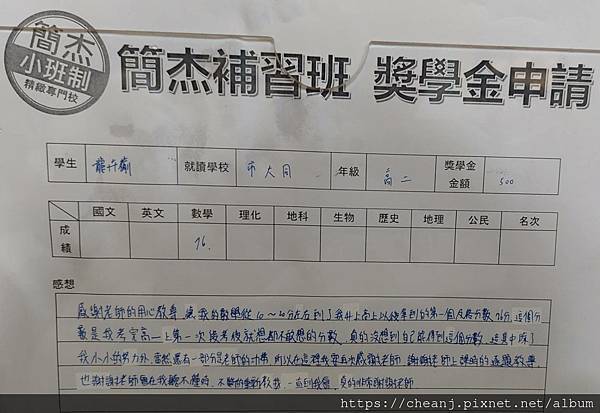 簡杰
小班制
精緻專門校
簡杰補習班 獎學金申請
學生 就讀學校 市大同 年級 高二 獎學金金額 500
國文 英文 數學 理化 地科 生物 歷史 地理 公民 名次
成績 76
感想
感謝老師的用心教導,讓我的數學從10~20分左右到了我升上高上以後拿到的第一個及格分數76分,這個分
數是我考完高一上第一次段考後就想都不敢想的分數,真的沒想到自己能得到這個分數,這其中除了
我小小的努力外,當然還有一部分是老師的功勞,所以在這裡我要再次感謝老師 謝謝老師上課時的逐題教導
也謝謝老師會在我聽不懂時,不斷的重新教我,一直到我會,真的非常謝謝老師
https://cheanj.pixnet.net/album